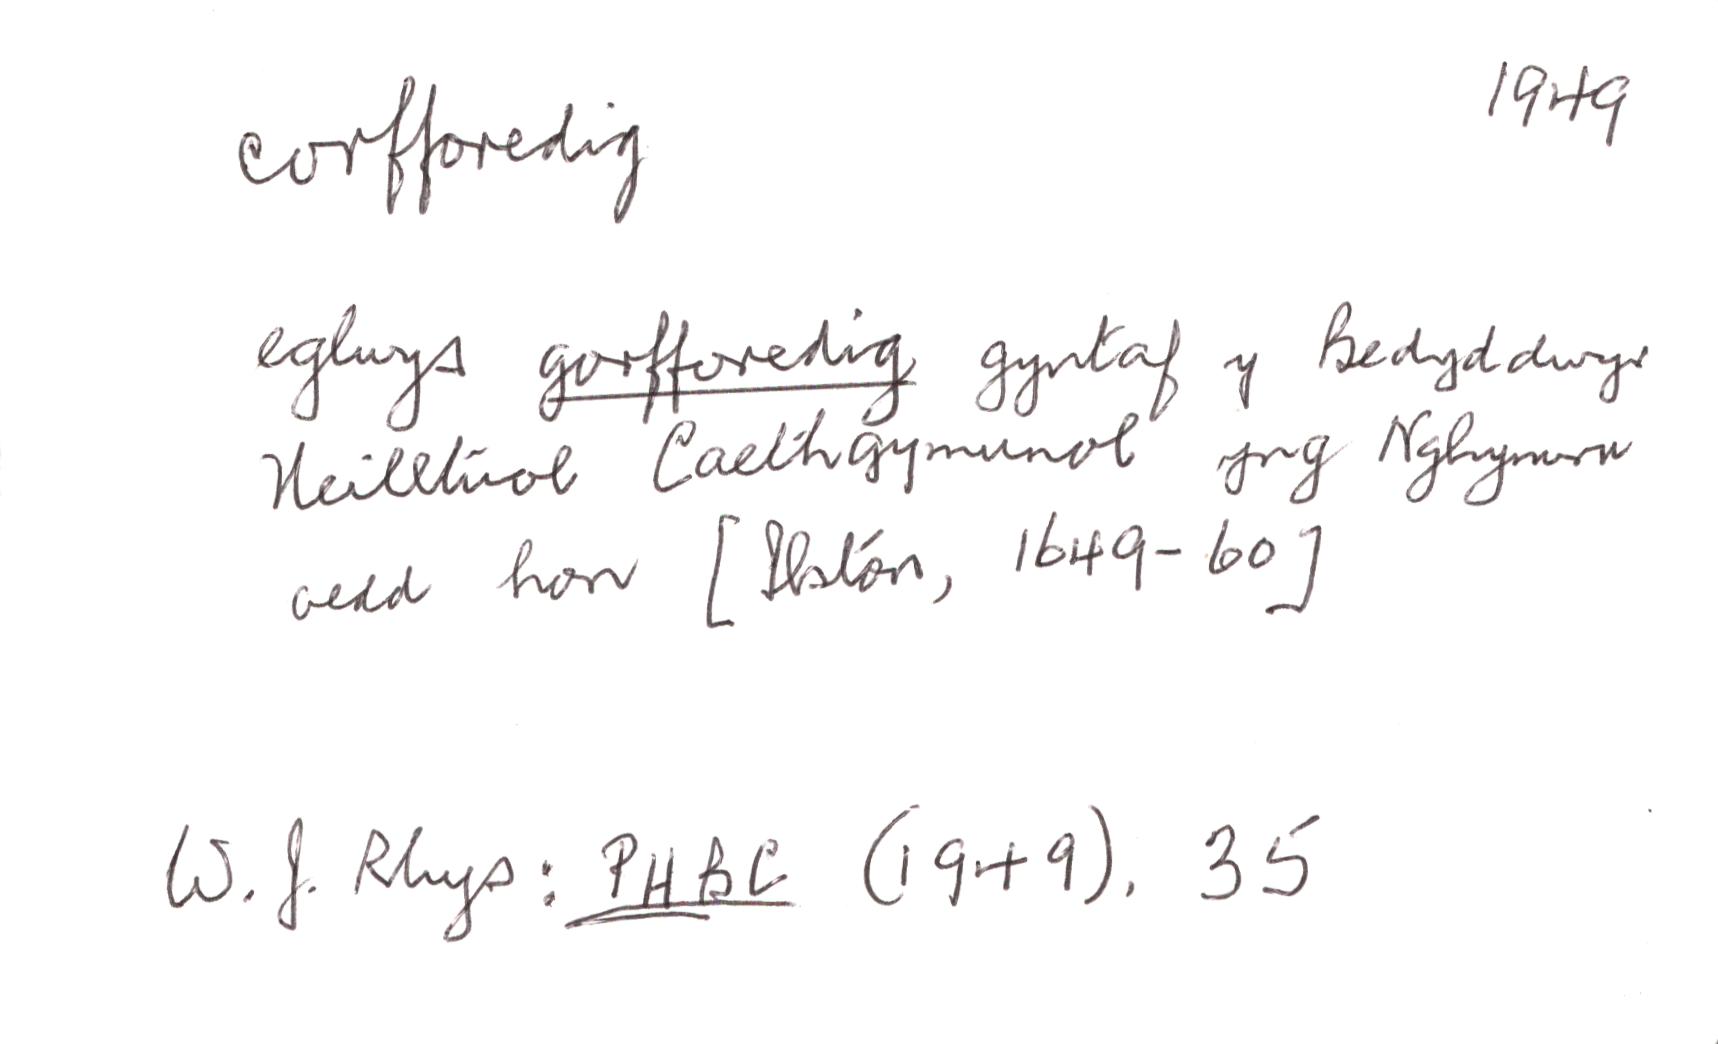 1949
corfforedig
eglwys gorfforedig gyntaf y Bedyddwyr
Neilltuol Caethgymunol yng Nghymru
oedd hon [Ilston, 1649-60]
W. J. Rhys: PHBC (1949), 35